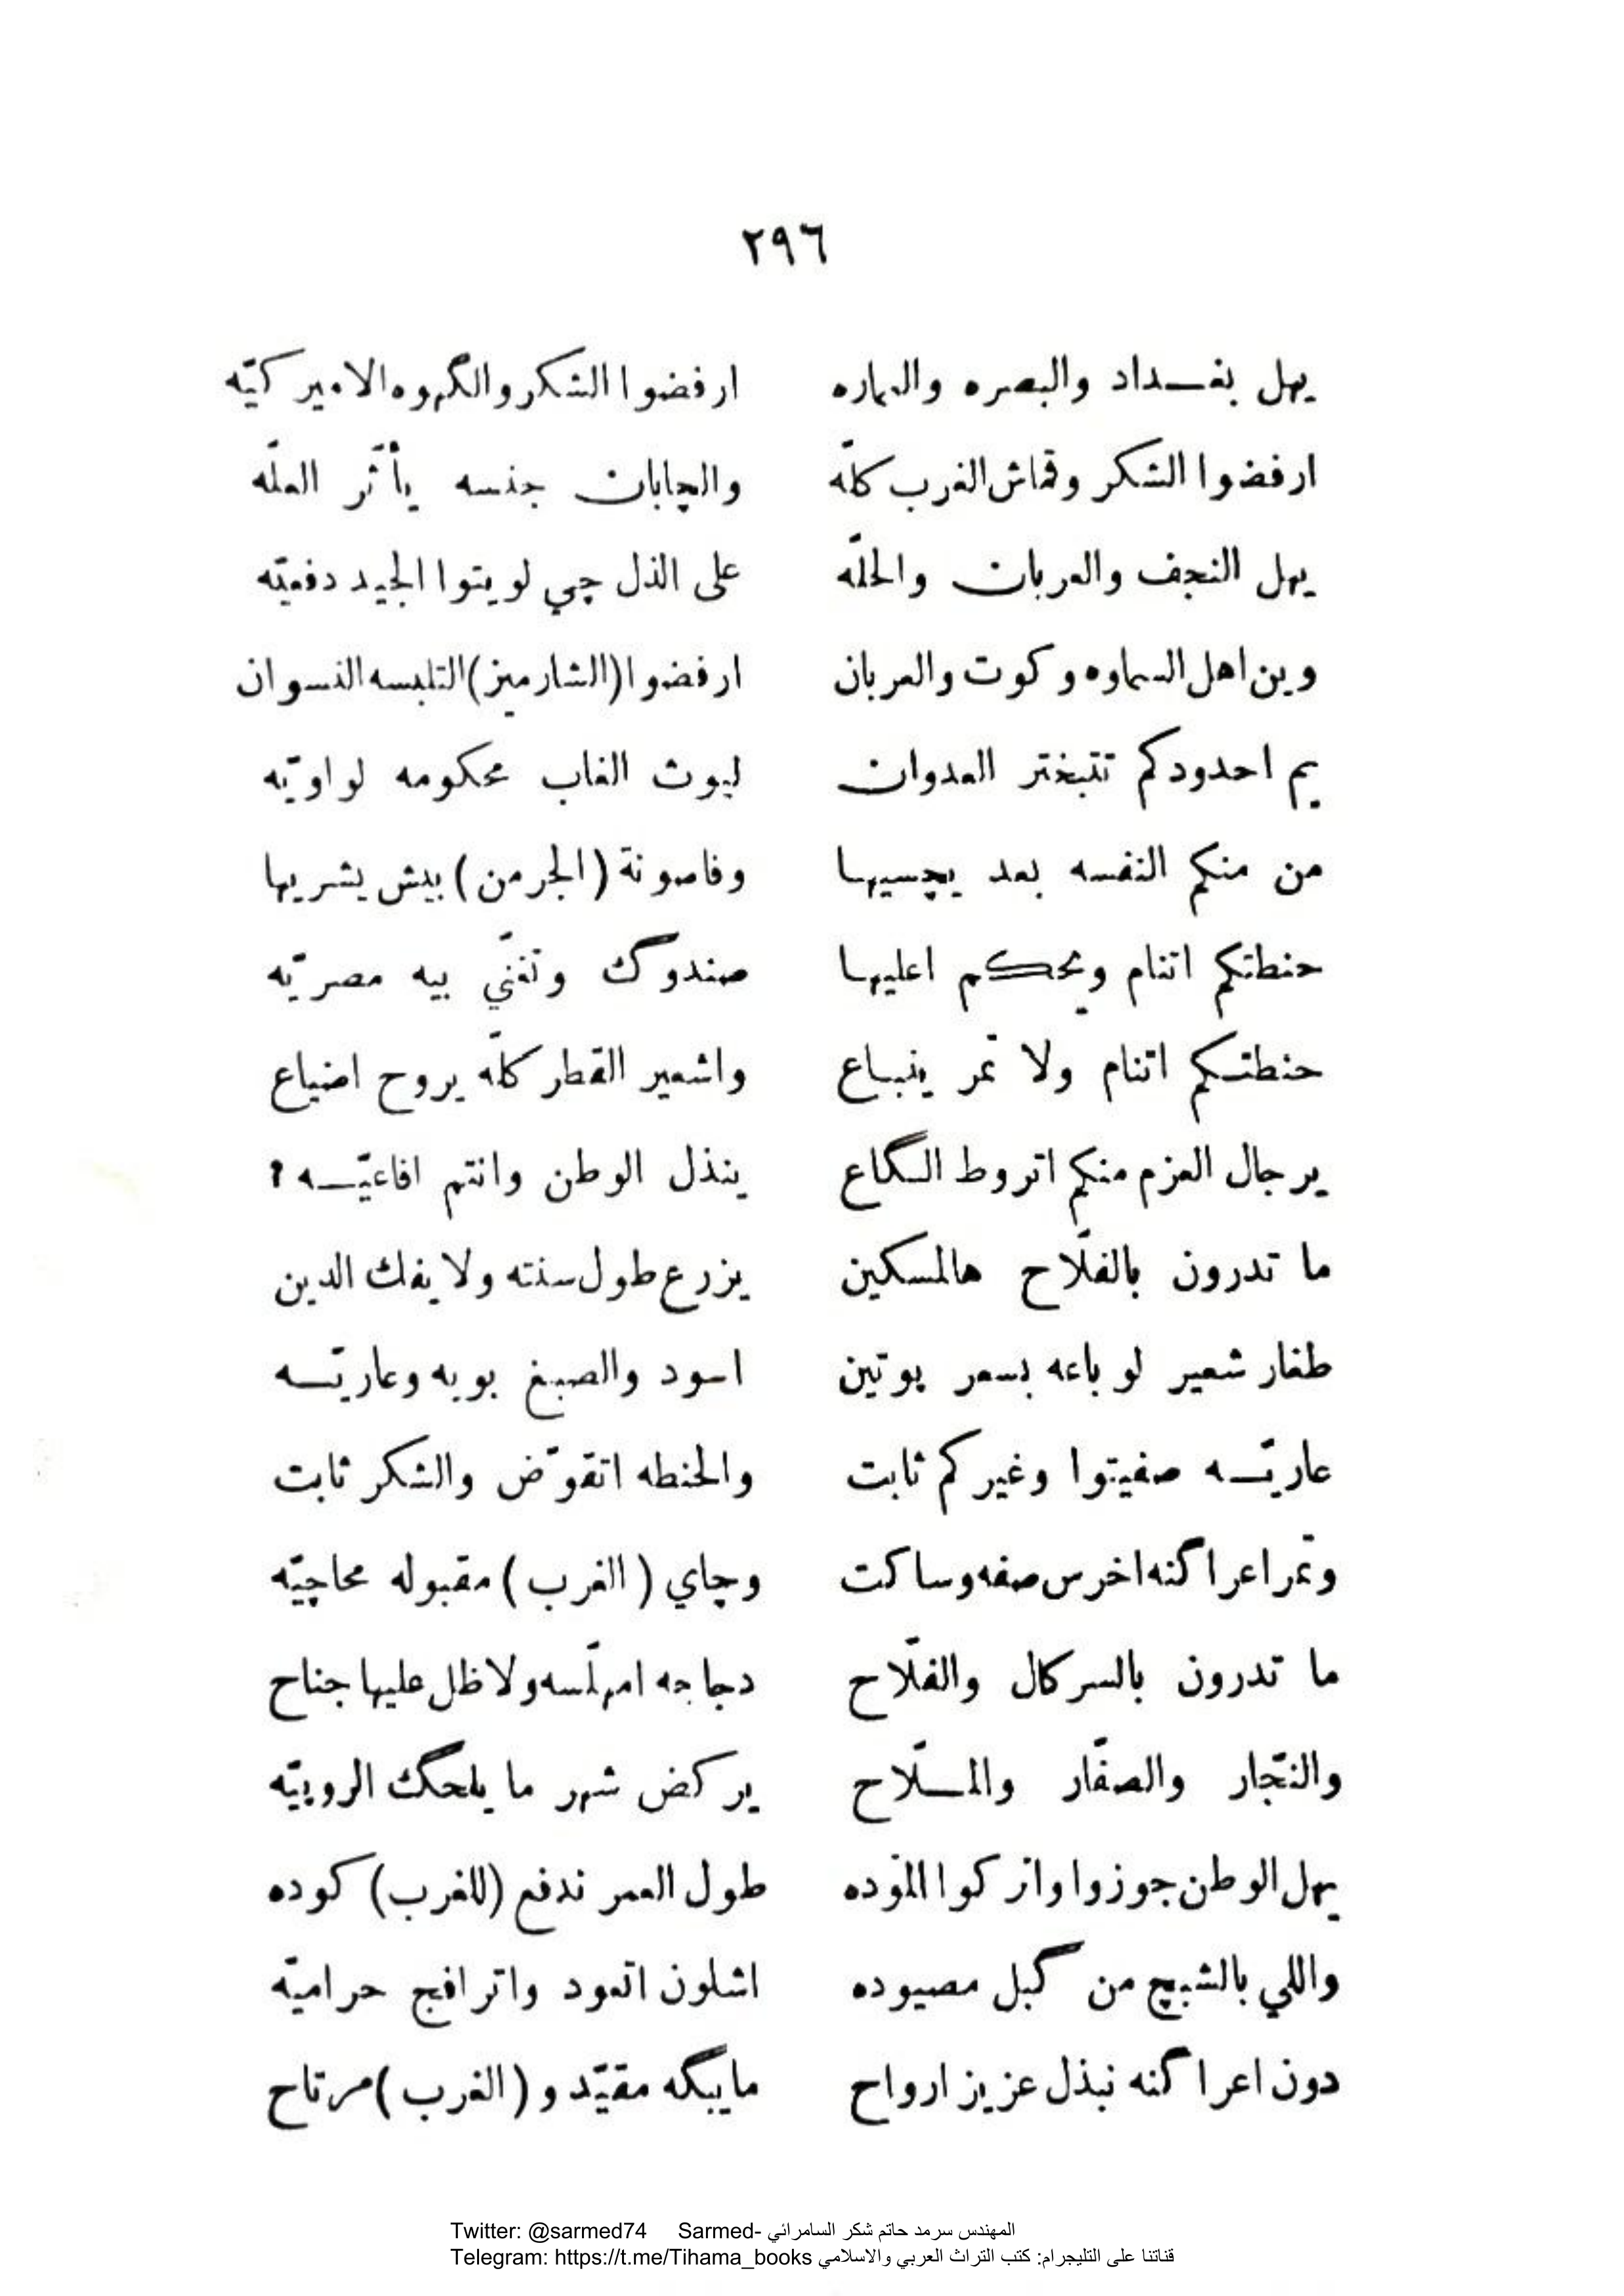 ٢٩٦
يهل بغـداد والبصره والعماره ارفضوا الشكر والگهوه الاميركيّه
ارفضوا الشكر وقماش الغرب كلّه والچابان جنسه يأثّر العلّه
يهل النجف والعربان والحلّه على الذل چي لويتوا الجيد دفعيّه
وين اهل السماوه وكوت والعربان ارفضوا (الشارميز) التلبسه النسوان
يم احدودكم تتبختر العدوان ليوث الغاب محكومه لواويّه
من منكم النفسه بعد يچسيها وفاصونة (الجرمن) بيش يشريها
حنطتكم اتنام ويحكم اعليها صندوگ وتغنّي بيه مصريّه
حنطتكم اتنام ولا تمّر ينباع واشعير القطر كلّه يروح اضياع
يرجال العزم منكم اتروط الگاع ينذل الوطن وانتم افاعيّـه ؟
ما تدرون بالفلّاح هالمسكين يزرع طول سنته ولا يفك الدين
طغار شعير لو باعه بسعر يوتين اسود والصبغ بويه وعاريّـه
عاريّـه صفيتوا وغيركم ثابت والحنطه اتقوّض والشكر ثابت
وتمّر اعراگنه اخرس صفه وساكت وچاي (الغرب) مقبوله محاچيّه
ما تدرون بالسركال والفلّاح دجاجه امهلّسه ولا ظل عليها جناح
والنجّار والصفّار والملّاح يركض شهر ما يلحگ الروبيّه
يهل الوطن جوزوا واتركوا الموّده طول العمر ندفع (للغرب) كوده
واللي بالشبچ من گبل مصيوده اشلون اتعود واترافج حراميّه
دون اعراگنه نبذل عزيز ارواح مايبگه مقيّد و (الغرب) مرتاح
Twitter: @sarmed74 Sarmed- المهندس سرمد حاتم شكر السامرائي
Telegram: https://t.me/Tihama_books قناتنا على التليجرام: كتب التراث العربي والاسلامي